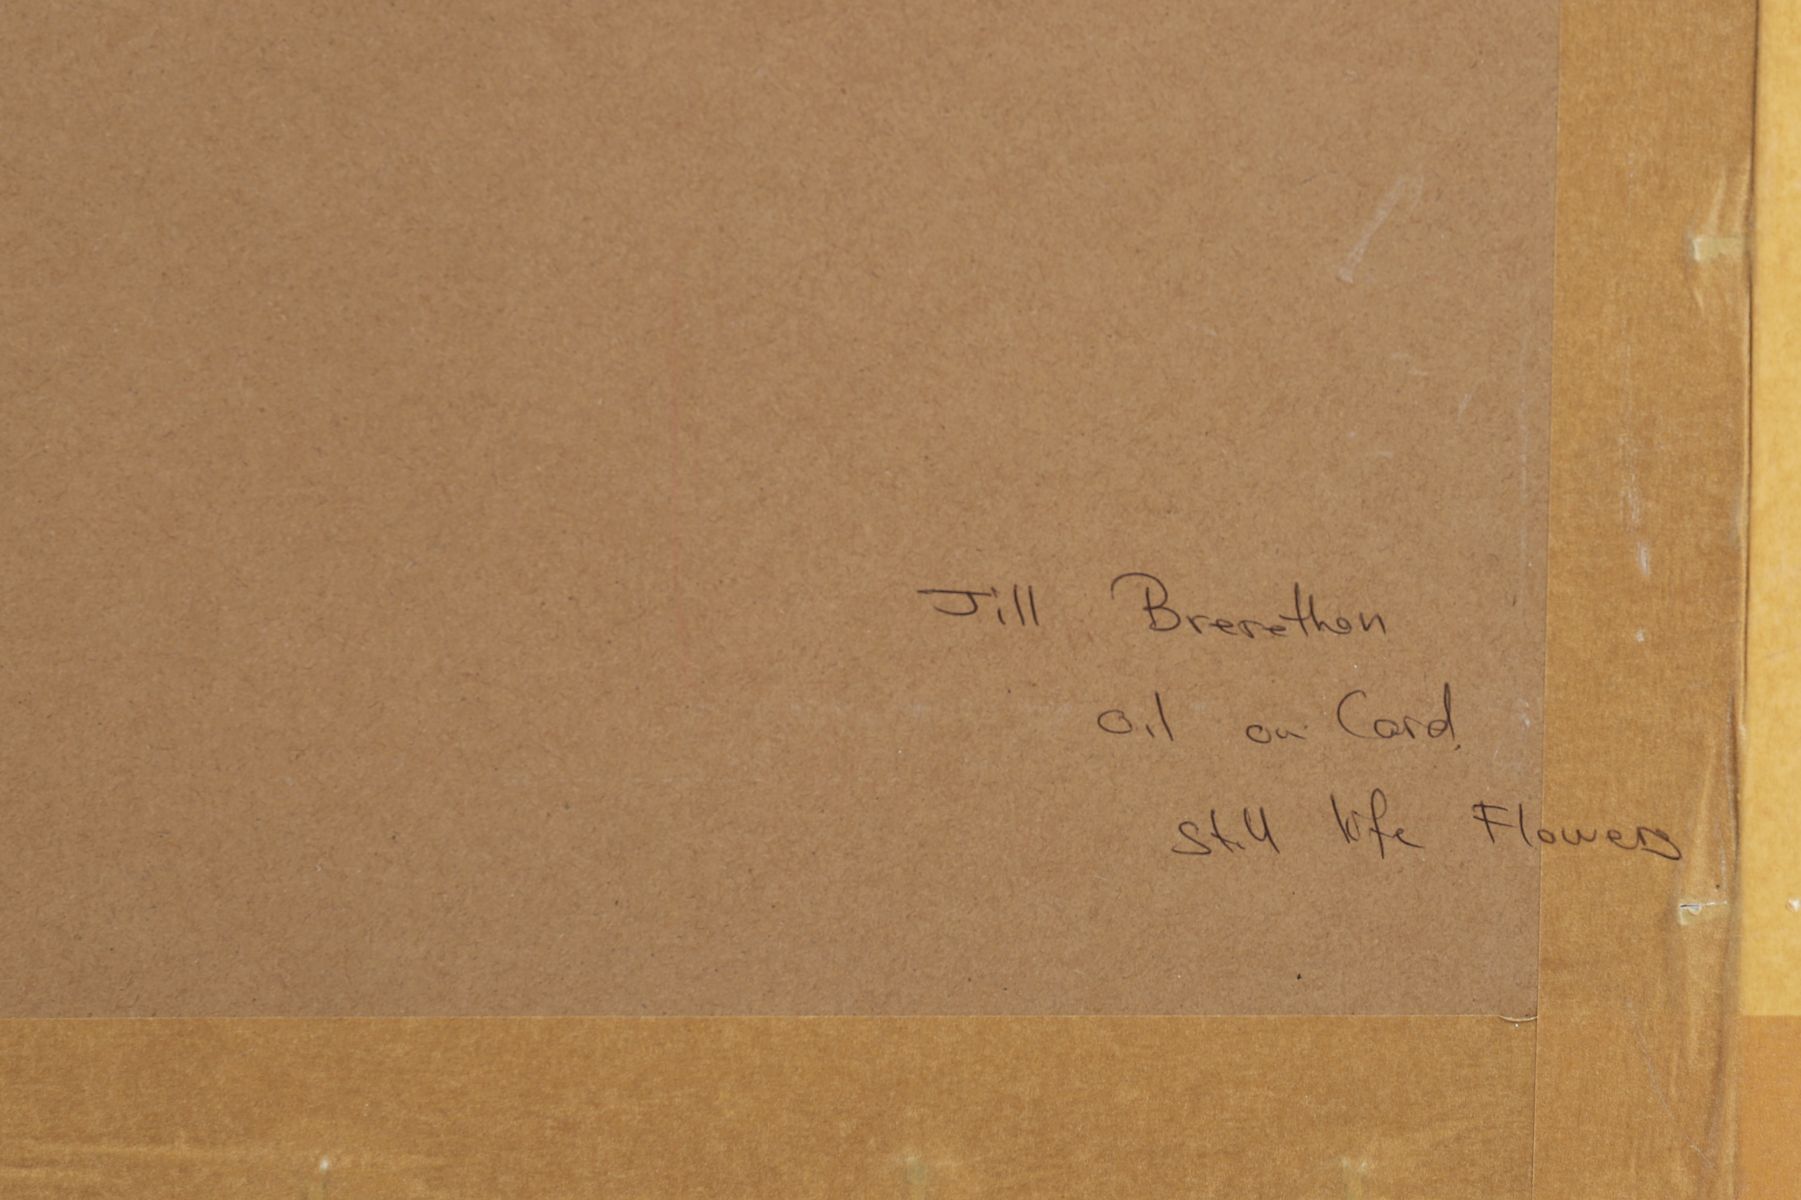 Jill Brerethon
oil on Card.
Still life Flowers